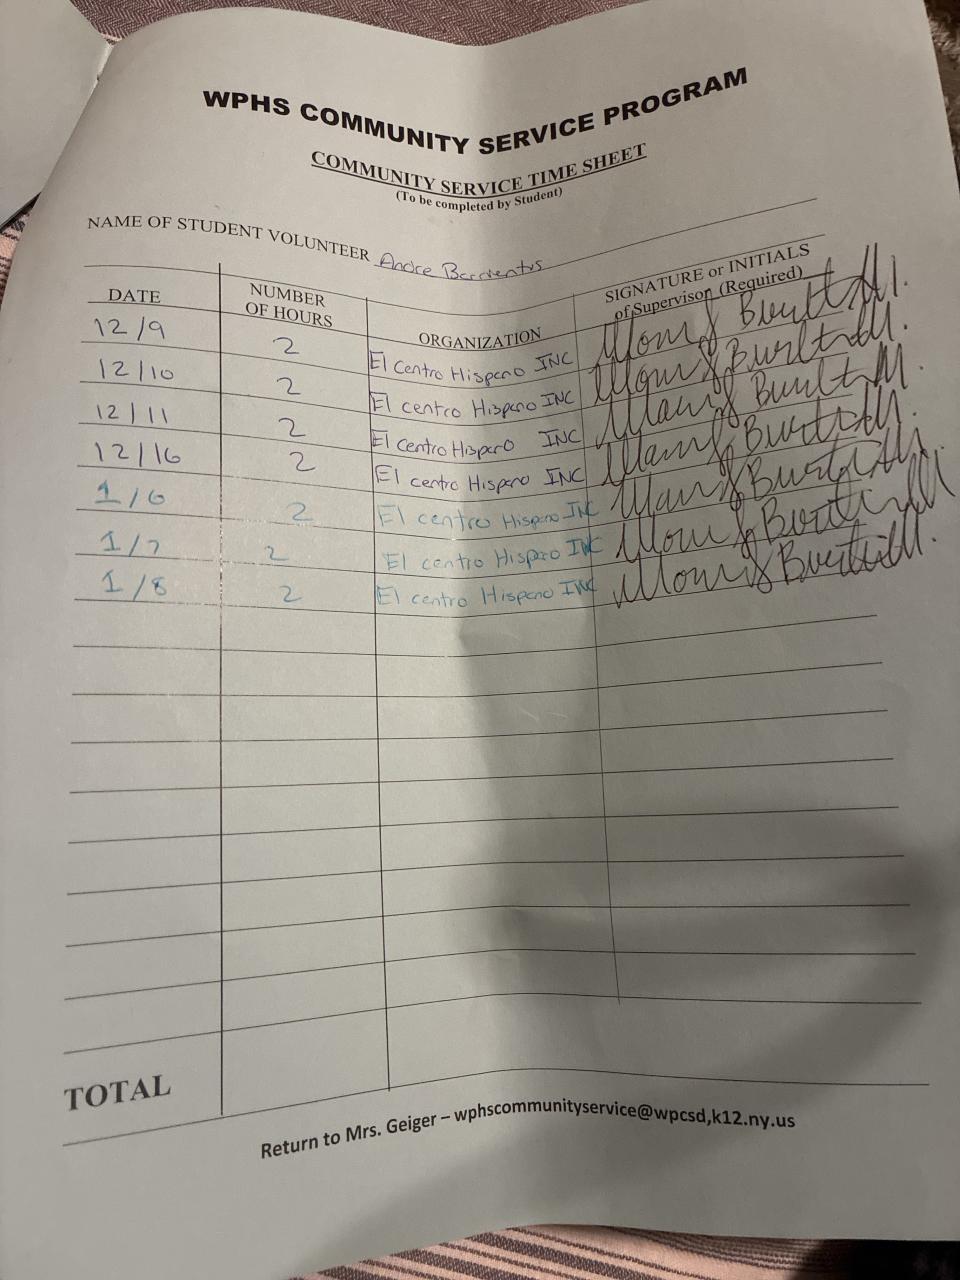 WPHS COMMUNITY SERVICE PROGRAM
COMMUNITY SERVICE TIME SHEET
(To be completed by Student)
NAME OF STUDENT VOLUNTEER Andre Barrientos
DATE NUMBER OF HOURS ORGANIZATION SIGNATURE or INITIALS of Supervisor (Required)
12/9 2 El Centro Hispano INC
12/10 2 El centro Hispano INC
12/11 2 El centro Hispano INC
12/16 2 El centro Hispano INC
1/6 2 El centro Hispano INC
1/7 2 El centro Hispano INC
1/8 2 El centro Hispano INC
TOTAL
Return to Mrs. Geiger – wphscommunityservice@wpcsd,k12.ny.us